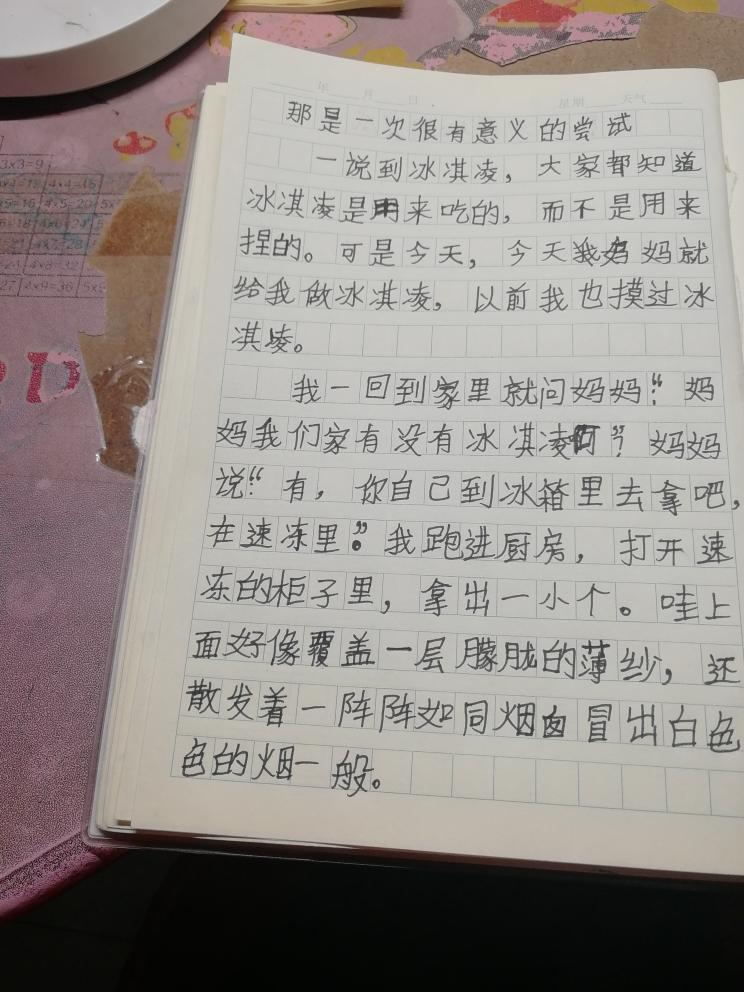 年 月 日 星期 天气
那是一次很有意义的尝试
一说到冰淇凌，大家都知道
冰淇凌是用来吃的，而不是用来
捏的。可是今天，今天我妈妈就
给我做冰淇凌，以前我也摸过冰
淇凌。
我一回到家里就问妈妈：“妈
妈我们家有没有冰淇凌啊”？妈妈
说：“有，你自己到冰箱里去拿吧，
在速冻里”。我跑进厨房，打开速
冻的柜子里，拿出一小个。哇上
面好像覆盖一层朦胧的薄纱，还
散发着一阵阵如同烟囱冒出白色
色的烟一般。
3x3=9
4x4=16
4x9=36